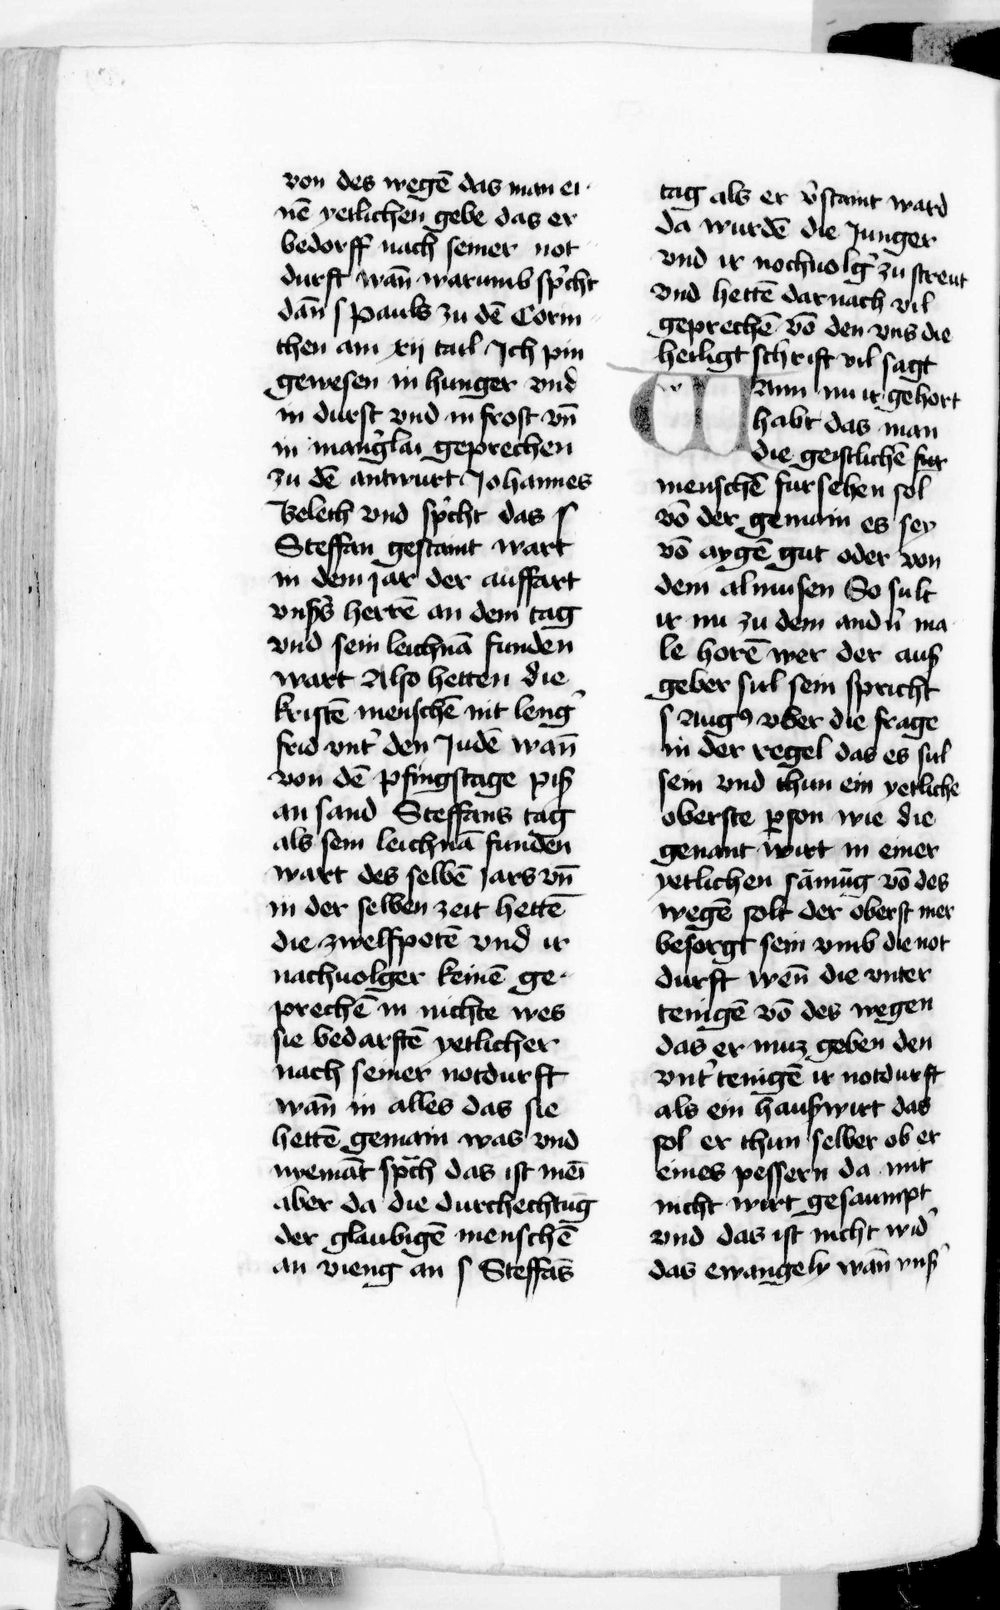 von des wegē das man ei
nē yetlichen gebe das er
bedorff nach seiner not
durft wañ warumb sp̄cht
dañ s Pauls zu dē Corin
then am xij tail Ich pin
gewesen in hunger vnd
in durst vnd in frost vñ
in mang̾lai geprechen
zu dē antwurt Johannes
Belech vnd sp̄cht das s
Steffan gestaint wart
in dem jar der auffart
vnßs̾ herrē an dem tag
vnd sein leichnā funden
wart Also hetten die
kristē menschē nit leng̾
frid vnt̾ den Judē wañ
von dē pfingstage piß
an sand Steffans tag
als sein leichnā funden
wart des selbē Jars vñ
in der selben zeit hettē
die zwelfpotē vnd ir
nachuolger keinē ge
prechē in nichte wes
sie bedarftē yetlicher
nach seiner notdurft
wañ in alles das sie
hettē gemain was vnd
niemāt sp̄ch das ist meī
aber da die durchechtūg
der glaubigē menschē
an vieng an s Steffās
tag als er v̾staint ward
da wurdē die Junger
vnd ir nochuolg̾ zu streut
vnd hettē darnach vil
geprechē vō den vns die
heiligt schrift vil sagt
Wann nu ir gehort
habt das man
die geistlichē fur
menschē fursehen sol
vō der gemain es sey
vō aygē gut oder von
dem almusen So sult
ir nu zu dem and̾n ma
le horē wer der auß
geber sul sein spricht
s Augꝰ vber die frage
in der regel das es sul
sein vnd thun ein yetliche
oberste ꝑson wie die
genant wirt in einer
yetlichen sāmūg vō des
wegē solt der oberst mer
besorgt sein vmb die not
durft weñ die vnter
tenigē vō des wegen
das er muz geben den
vnt̾tenigē ir notdurft
als ein haußwirt das
sol er thun selber ob er
eines pessern da mit
nicht wirt gesaumpt
vnd das ist nicht wid̾
das ewangely wañ vnß̾